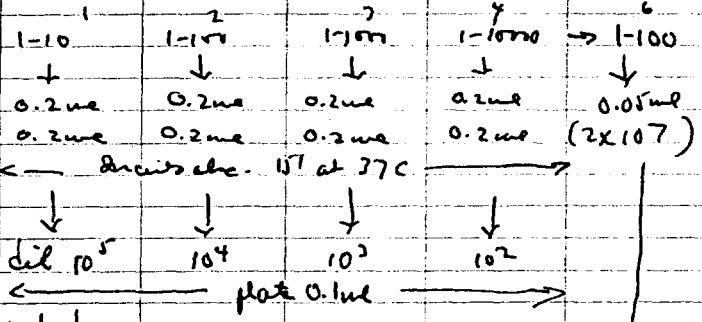 1 2 3 4 6
1-10 1-100 1-1000 1-10000 → 1-100
0.2ml 0.2ml 0.2ml 0.2ml 0.05ml
0.2ml 0.2ml 0.2ml 0.2ml (2x107)
15' at 37C
dil 10⁵ 10⁴ 10³ 10²
plate 0.1ml